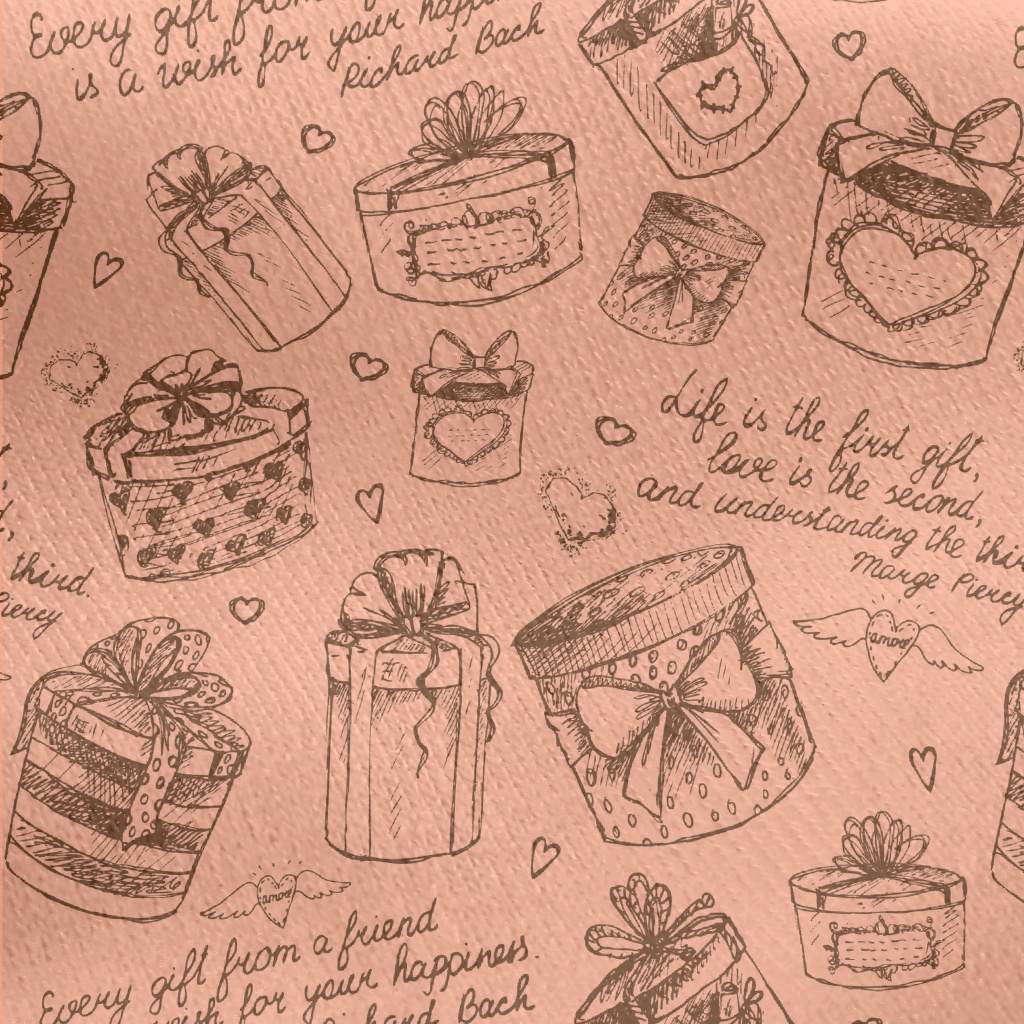 Every gift from
is a wish for your happin
Richard Bach
Life is the first gift,
love is the second,
and understanding the thir
Marge Piercy
third.
Piercy
amore
amore
Every gift from a friend
wish for your happiness.
hard Bach